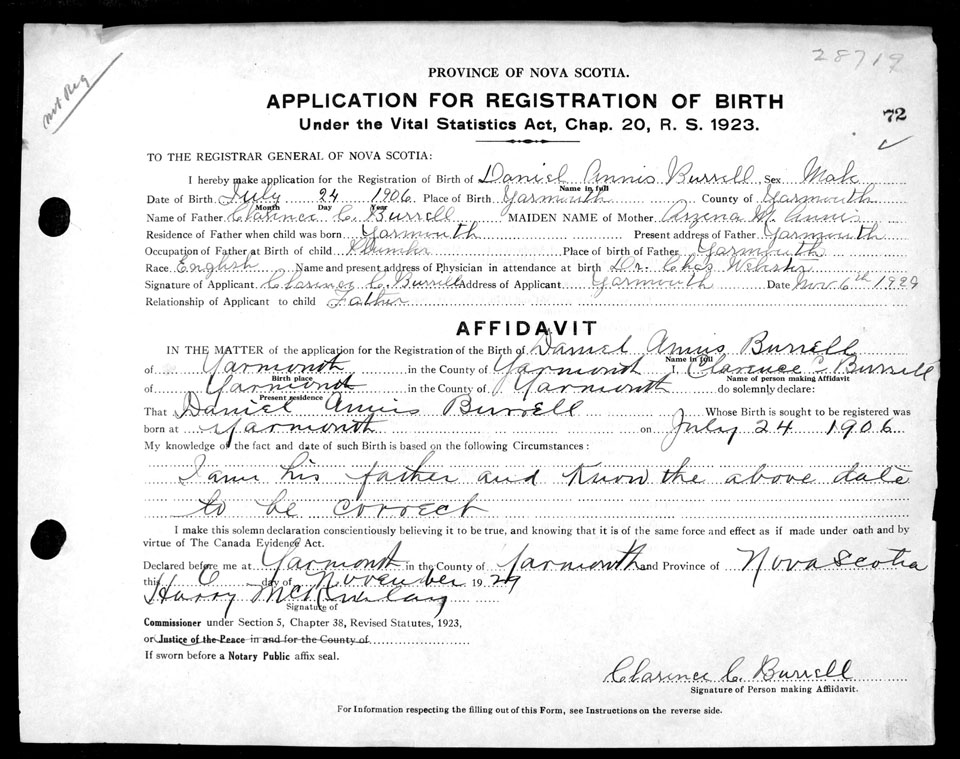 28719
not Reg
PROVINCE OF NOVA SCOTIA.
APPLICATION FOR REGISTRATION OF BIRTH
72
Under the Vital Statistics Act, Chap. 20, R. S. 1923.
TO THE REGISTRAR GENERAL OF NOVA SCOTIA:
I hereby make application for the Registration of Birth of Daniel Annis Burrell Sex Male
Name in full
Date of Birth July 24 1906. Place of Birth Yarmouth County of Yarmouth
Month Day Year
Name of Father Clarence C. Burrell MAIDEN NAME of Mother Annis
Residence of Father when child was born Yarmouth Present address of Father Yarmouth
Occupation of Father at Birth of child Plumber Place of birth of Father Yarmouth
Race English Name and present address of Physician in attendance at birth Dr. Chas Webster
Signature of Applicant Clarence C. Burrell Address of Applicant Yarmouth Date Nov 6th 1929
Relationship of Applicant to child Father
AFFIDAVIT
IN THE MATTER of the application for the Registration of the Birth of Daniel Annis Burrell
Name in full
of Yarmouth in the County of Yarmouth I, Clarence C Burrell
Birth place Name of person making Affidavit
of Yarmouth in the County of Yarmouth do solemnly declare:
Present residence
That Daniel Annis Burrell Whose Birth is sought to be registered was
born at Yarmouth on July 24 1906
My knowledge of the fact and date of such Birth is based on the following Circumstances:
I am his father and Know the above date
to be correct
I make this solemn declaration conscientiously believing it to be true, and knowing that it is of the same force and effect as if made under oath and by
virtue of The Canada Evidence Act.
Declared before me at Yarmouth in the County of Yarmouth and Province of Nova Scotia
this 6 day of November 1929
Harry McKinlay
Signature of
Commissioner under Section 5, Chapter 38, Revised Statutes, 1923,
or Justice of the Peace in and for the County of
If sworn before a Notary Public affix seal.
Clarence C. Burrell
Signature of Person making Affidavit.
For Information respecting the filling out of this Form, see Instructions on the reverse side.